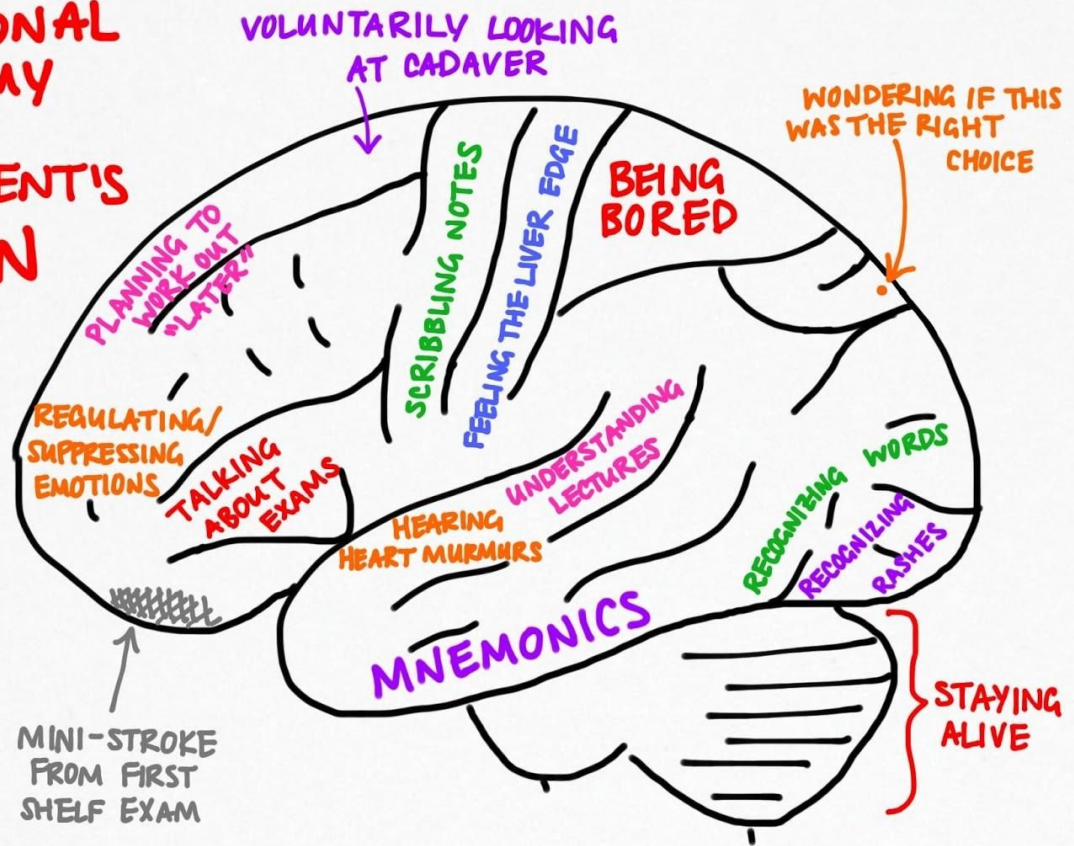 ONAL
MY
ENT'S
N
VOLUNTARILY LOOKING
AT CADAVER
WONDERING IF THIS
WAS THE RIGHT
CHOICE
PLANNING TO
WORK OUT
"LATER"
SCRIBBLING NOTES
FEELING THE LIVER EDGE
BEING
BORED
REGULATING/
SUPPRESSING
EMOTIONS
TALKING
ABOUT
EXAMS
HEARING
HEART MURMURS
UNDERSTANDING
LECTURES
RECOGNIZING WORDS
RECOGNIZING
RASHES
MNEMONICS
STAYING
ALIVE
MINI-STROKE
FROM FIRST
SHELF EXAM